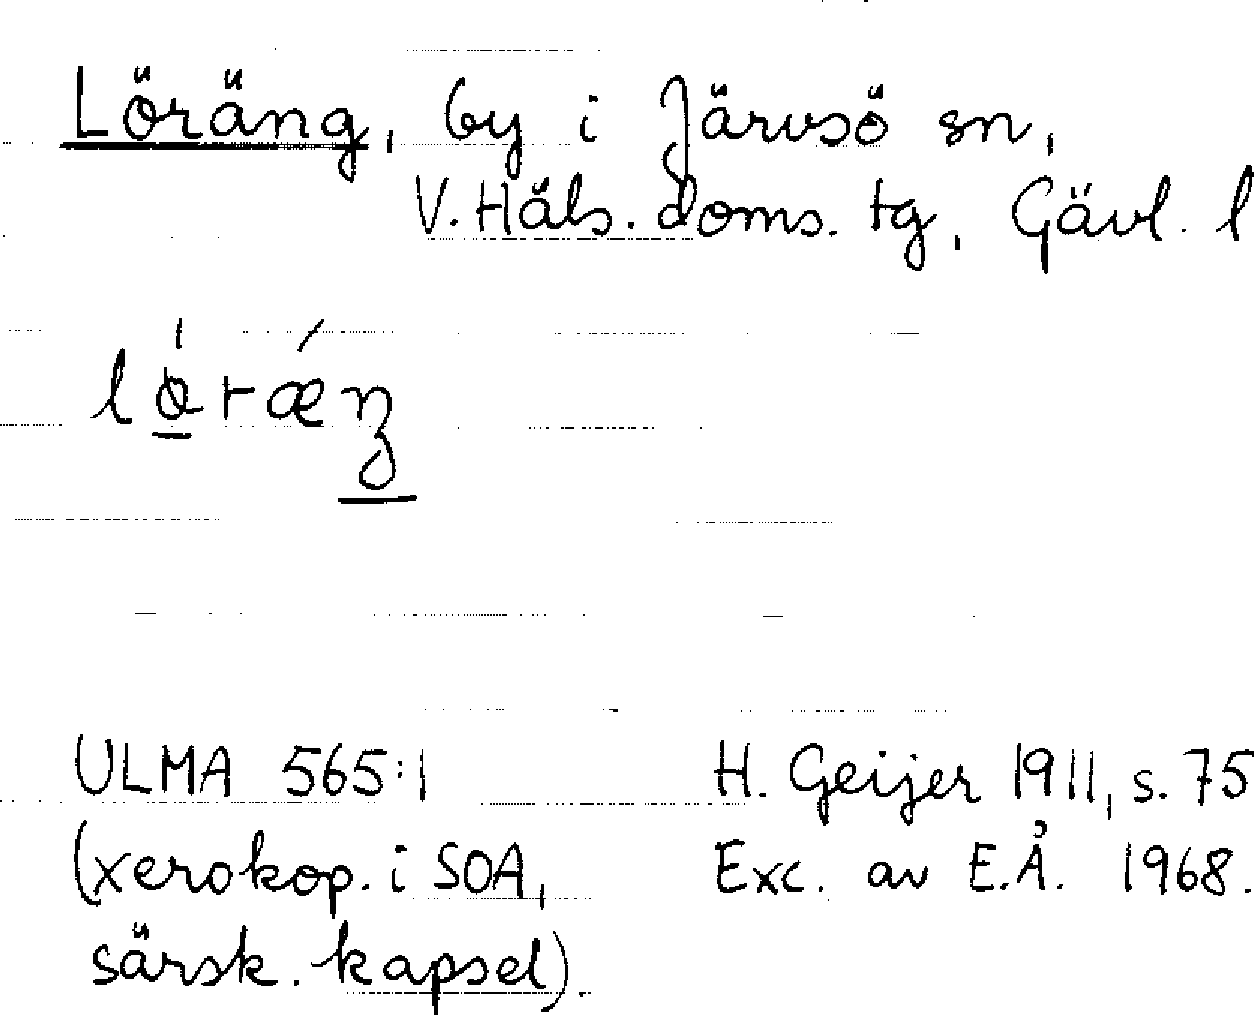 Löräng, by i Järvsö sn,
V. Häls. doms. tg, Gävl. l
ULMA 565:1 H. Geijer 1911, s. 75
(xerokop. i SOA, Exc. av E.Å. 1968.
särsk. kapsel).